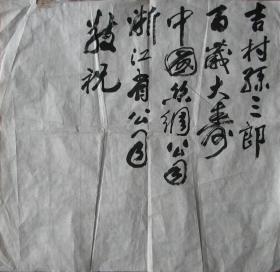 吉村孫三郎
百歲大壽
中國絲綢公司
浙江省公司
敬祝